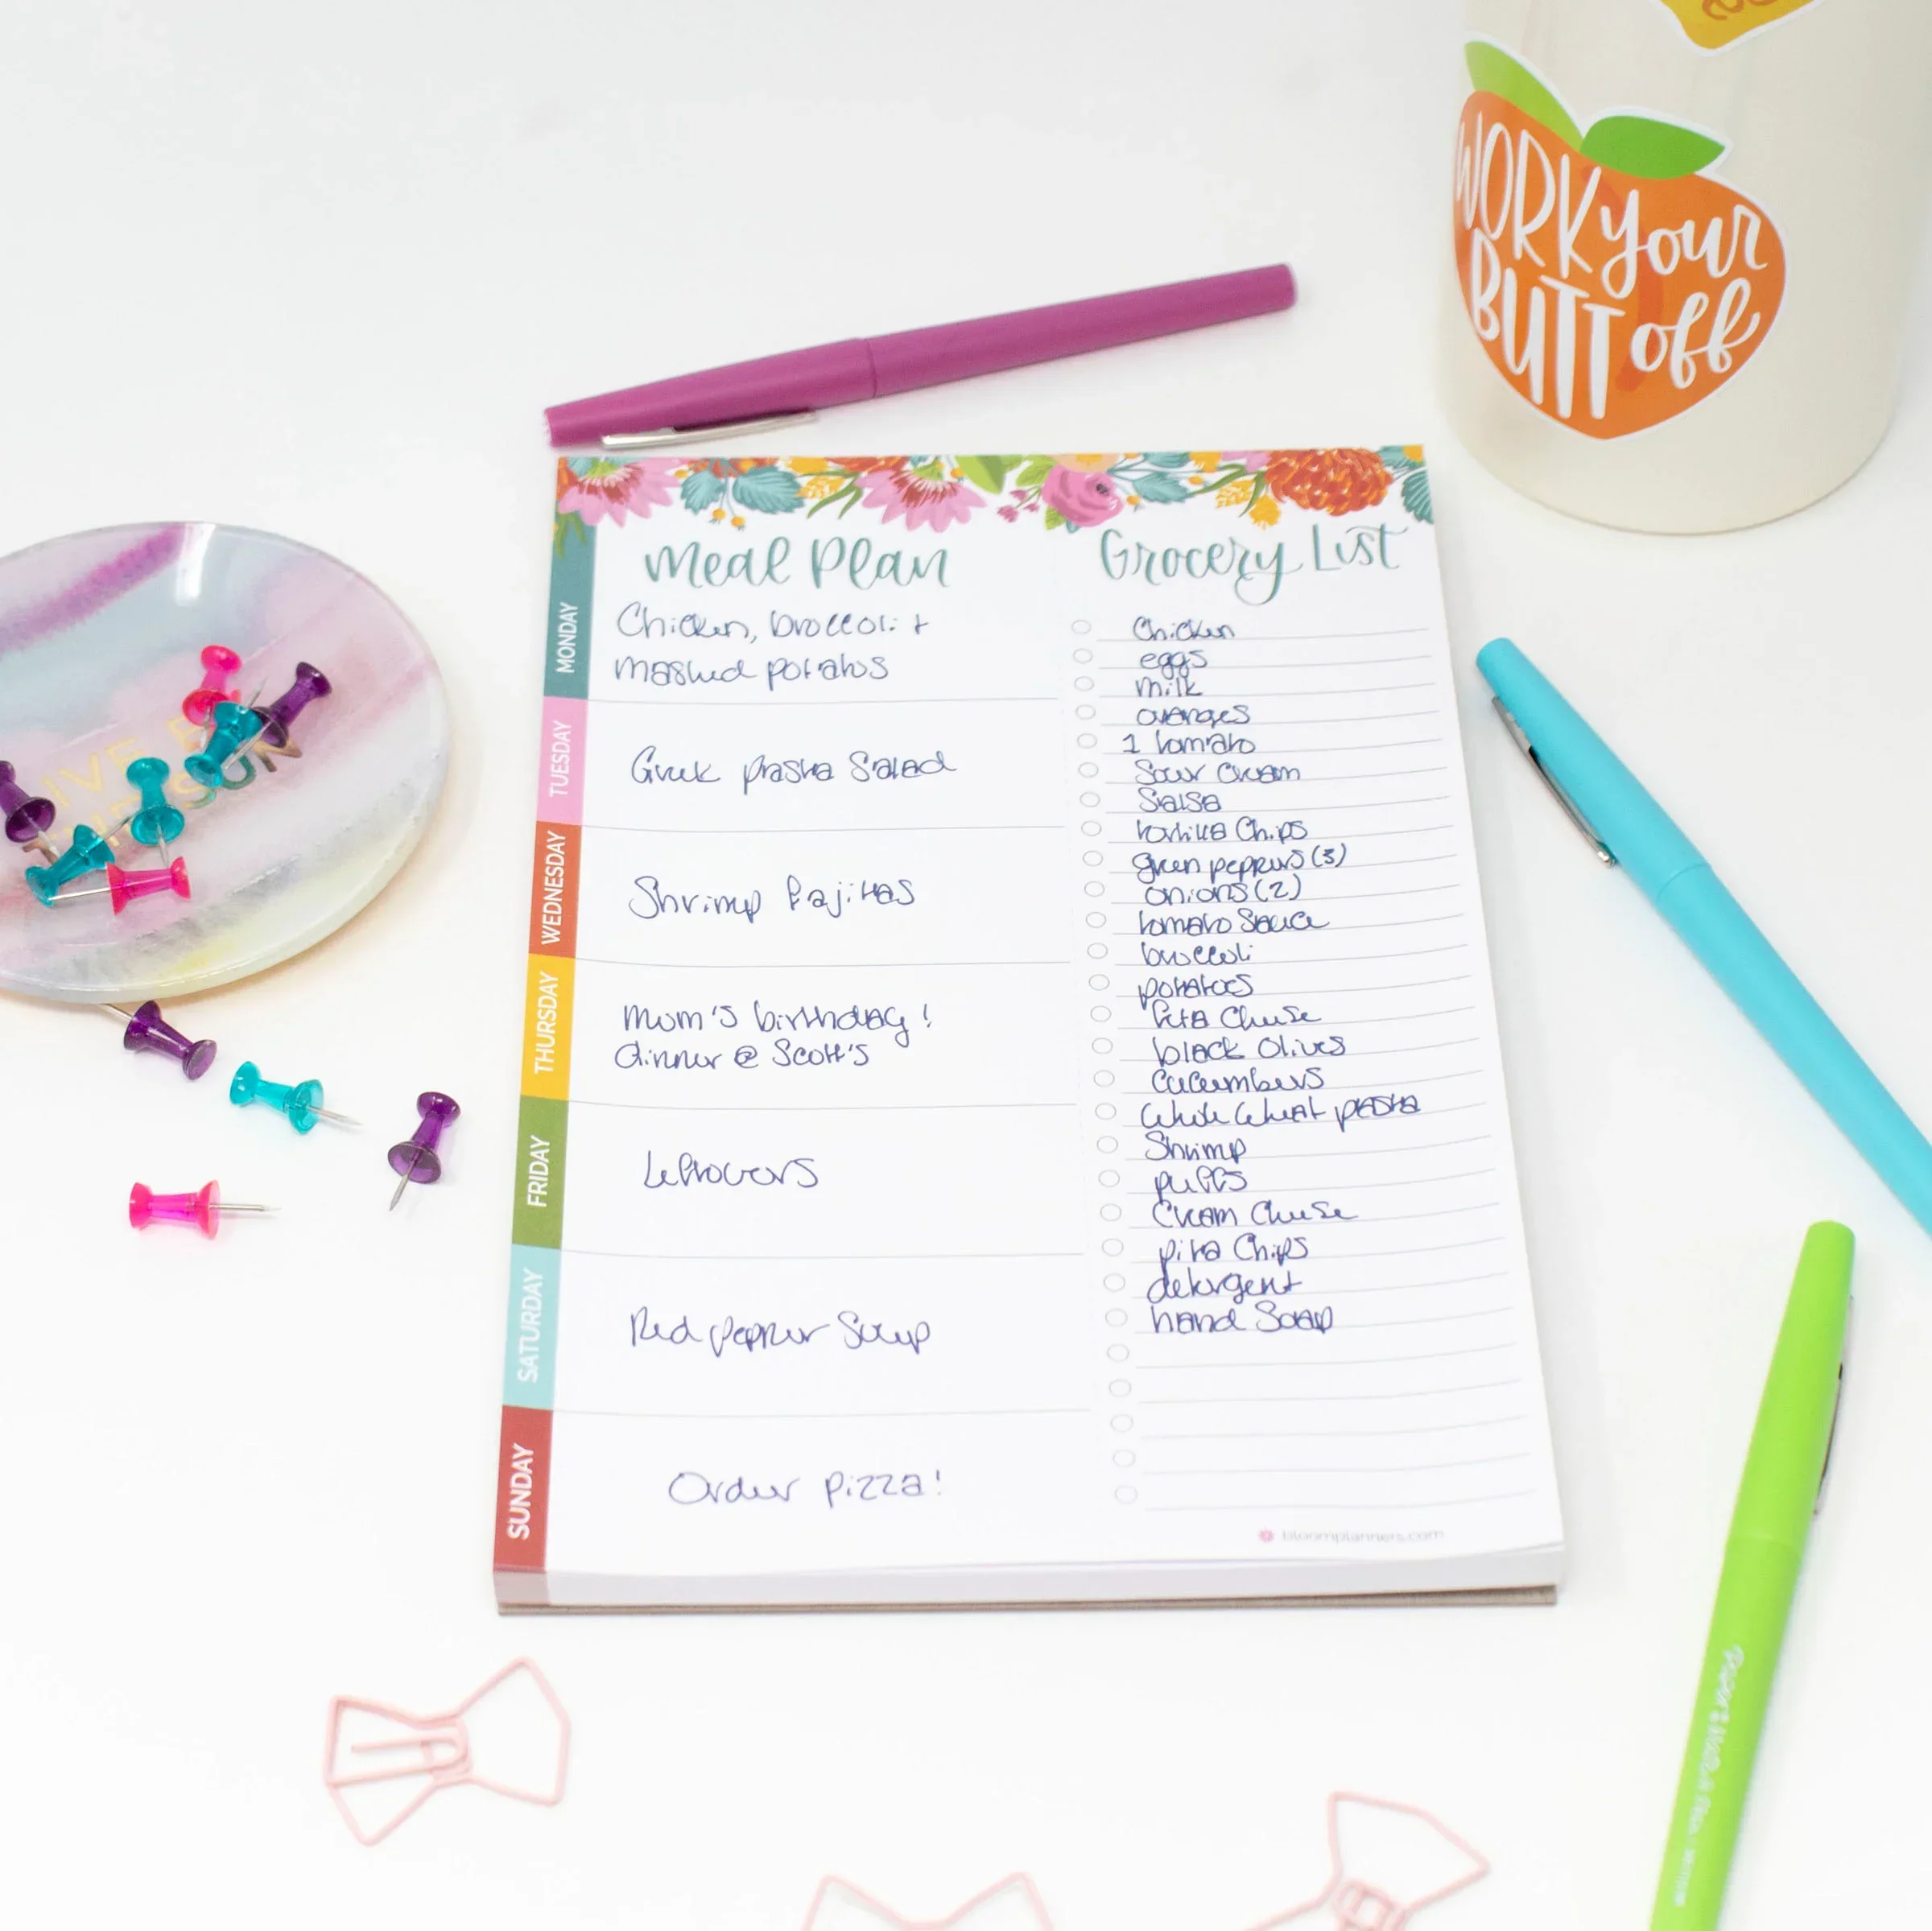 WORK your
BUTT off
Meal Plan
MONDAY
Chicken, broccoli +
mashed potatoes
TUESDAY
Greek pasta Salad
WEDNESDAY
Shrimp fajitas
THURSDAY
Mom's birthday!
dinner @ Scott's
FRIDAY
Leftovers
SATURDAY
Red pepper Soup
SUNDAY
Order pizza!
Grocery List
Chicken
eggs
milk
oranges
1 tomato
Sour Cream
Salsa
tortilla Chips
green peppers (3)
onions (2)
tomato Sauce
broccoli
potatoes
feta Cheese
black Olives
Cucumbers
Whole Wheat pasta
Shrimp
puffs
Cream Cheese
pita Chips
detergent
hand Soap
bloomplanners.com